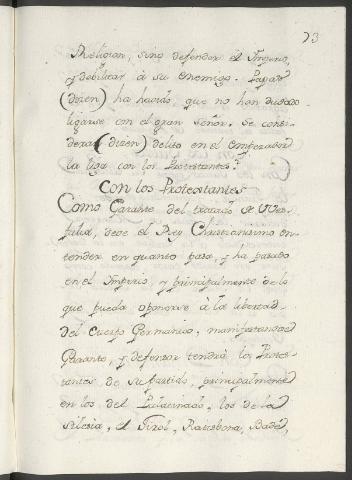 73
Religion, sino defender el Imperio,
y debilitar à su enemigo. Papas
(dizen) ha havido, que no han dudado
ligarse con el gran Señor. Se consi-
dera (dizen) delito en el Emperador
la liga con los Protestantes?
Con los Protestantes
Como Garante del tratado de Wes-
falia, deve el Rey Christianisimo en-
tender en quanto pase, y ha pasado
en el Imperio, y principalmente à lo
que pueda oponerse à la libertad
del Cuerpo Germanico, manifestandose
Garante, y defensor tendrà los Protes-
tantes de su partido, principalmente
en los del Palatinado, los de la
Silesia, el Tirol, Ratisbona, Badèn,